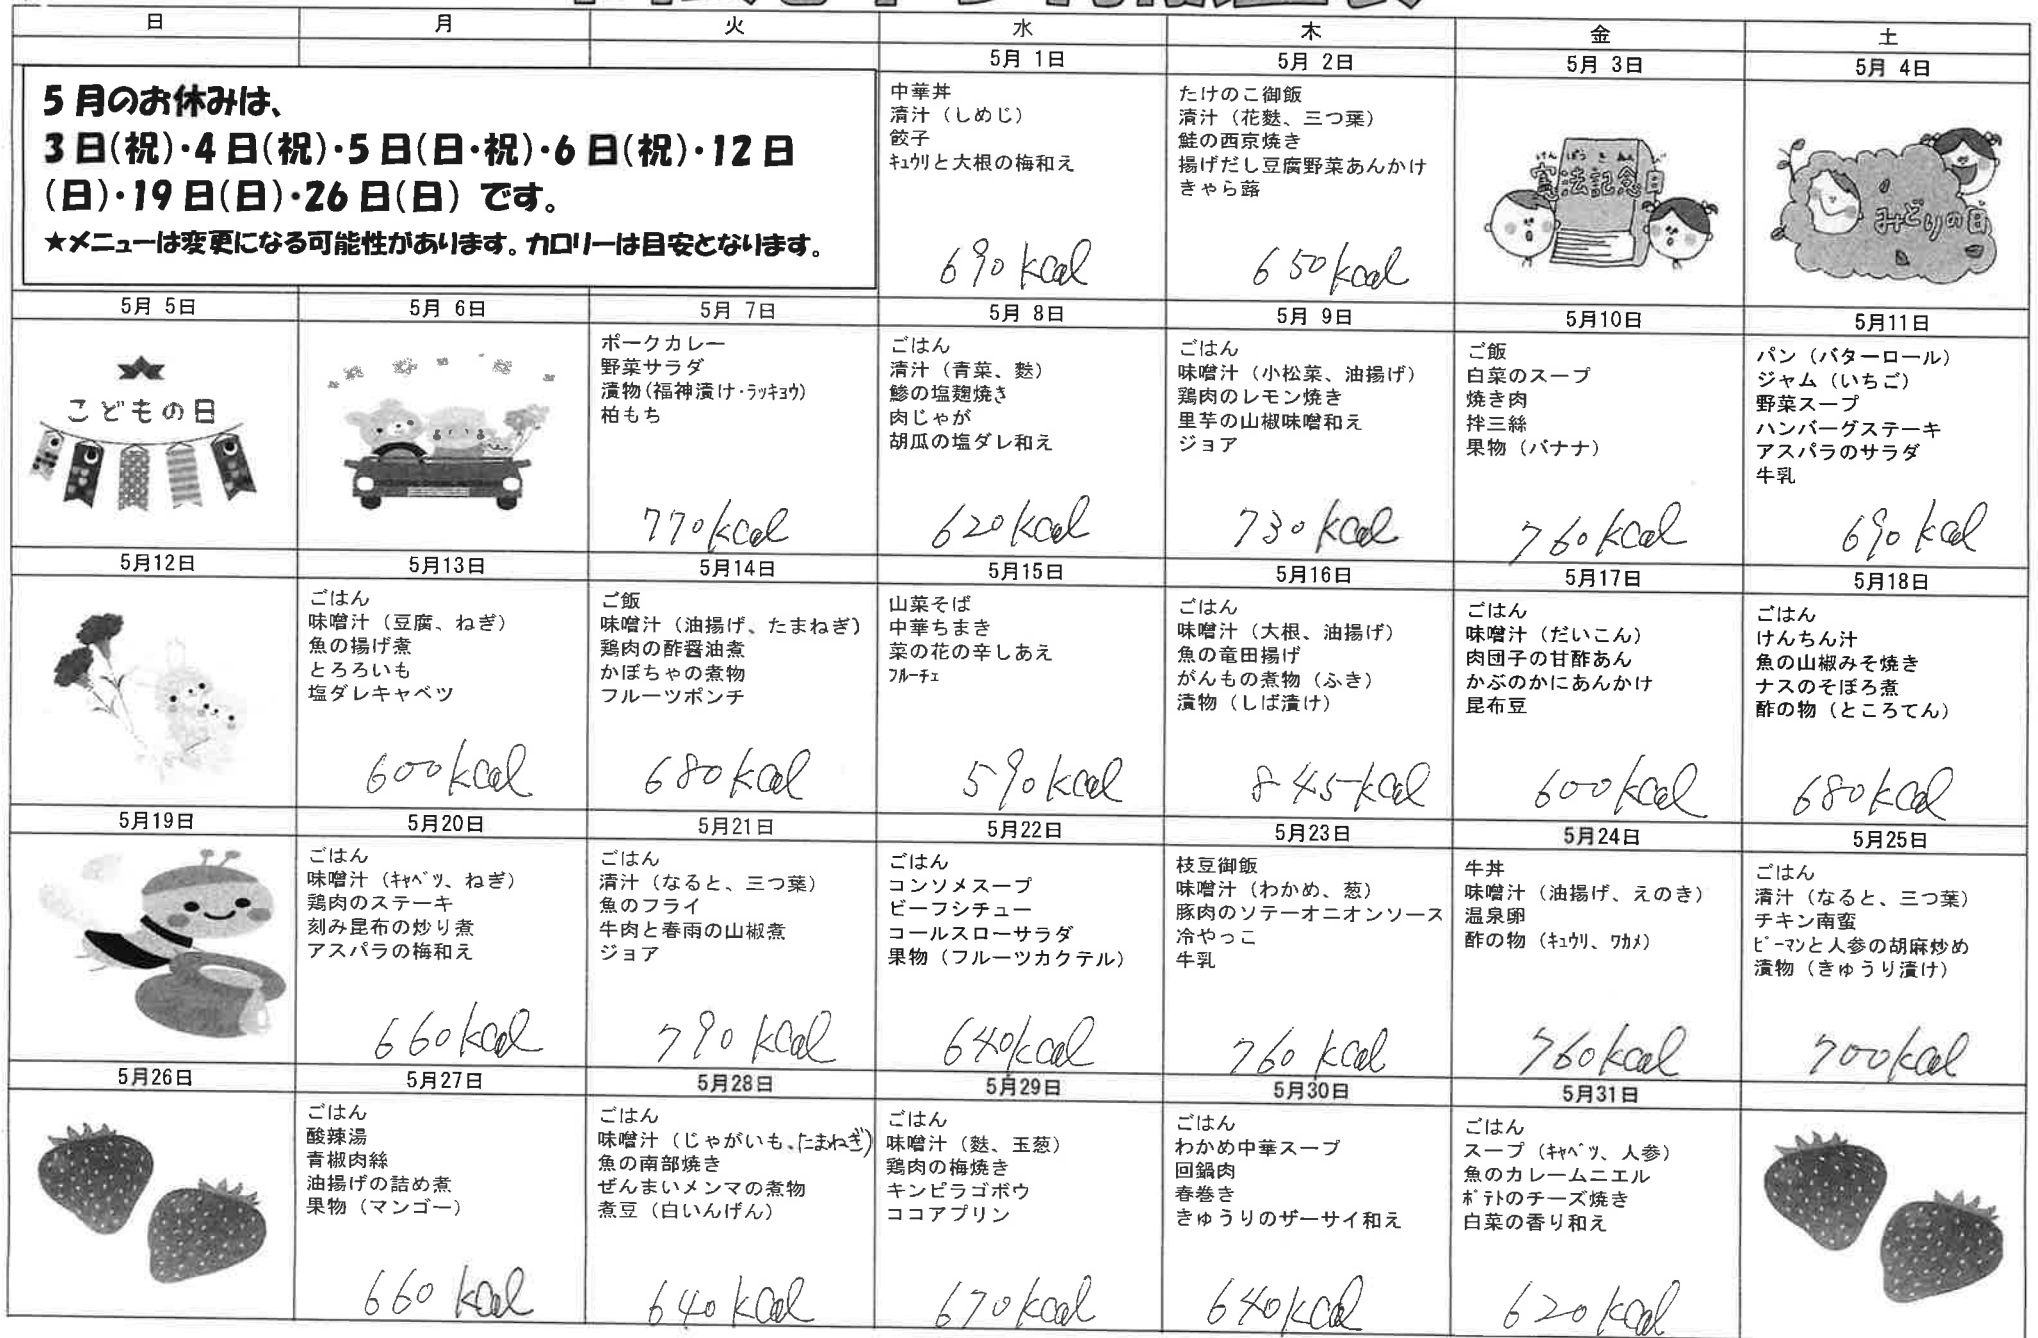 日 月 火 水 木 金 土
5月 1日 5月 2日 5月 3日 5月 4日
5月のお休みは、
3日(祝)・4日(祝)・5日(日・祝)・6日(祝)・12日
(日)・19日(日)・26日(日) です。
★メニューは変更になる可能性があります。カロリーは目安となります。
中華丼
清汁（しめじ）
餃子
ｷｭｳﾘと大根の梅和え
690kcal
たけのこ御飯
清汁（花麩、三つ葉）
鮭の西京焼き
揚げだし豆腐野菜あんかけ
きゃら蕗
650kcal
けんぽうきねんび
憲法記念日
みどりの日
5月 5日 5月 6日 5月 7日 5月 8日 5月 9日 5月10日 5月11日
こどもの日
ポークカレー
野菜サラダ
漬物(福神漬け・ﾗｯｷｮｳ)
柏もち
770kcal
ごはん
清汁（青菜、麩）
鯵の塩麹焼き
肉じゃが
胡瓜の塩ダレ和え
620kcal
ごはん
味噌汁（小松菜、油揚げ）
鶏肉のレモン焼き
里芋の山椒味噌和え
ジョア
730kcal
ご飯
白菜のスープ
焼き肉
拌三絲
果物（バナナ）
760kcal
パン（バターロール）
ジャム（いちご）
野菜スープ
ハンバーグステーキ
アスパラのサラダ
牛乳
690kcal
5月12日 5月13日 5月14日 5月15日 5月16日 5月17日 5月18日
ごはん
味噌汁（豆腐、ねぎ）
魚の揚げ煮
とろろいも
塩ダレキャベツ
600kcal
ご飯
味噌汁（油揚げ、たまねぎ）
鶏肉の酢醤油煮
かぼちゃの煮物
フルーツポンチ
680kcal
山菜そば
中華ちまき
菜の花の辛しあえ
ﾌﾙｰﾁｪ
590kcal
ごはん
味噌汁（大根、油揚げ）
魚の竜田揚げ
がんもの煮物（ふき）
漬物（しば漬け）
845kcal
ごはん
味噌汁（だいこん）
肉団子の甘酢あん
かぶのかにあんかけ
昆布豆
600kcal
ごはん
けんちん汁
魚の山椒みそ焼き
ナスのそぼろ煮
酢の物（ところてん）
680kcal
5月19日 5月20日 5月21日 5月22日 5月23日 5月24日 5月25日
ごはん
味噌汁（ｷｬﾍﾞﾂ、ねぎ）
鶏肉のステーキ
刻み昆布の炒り煮
アスパラの梅和え
660kcal
ごはん
清汁（なると、三つ葉）
魚のフライ
牛肉と春雨の山椒煮
ジョア
790kcal
ごはん
コンソメスープ
ビーフシチュー
コールスローサラダ
果物（フルーツカクテル）
640kcal
枝豆御飯
味噌汁（わかめ、葱）
豚肉のソテーオニオンソース
冷やっこ
牛乳
760kcal
牛丼
味噌汁（油揚げ、えのき）
温泉卵
酢の物（ｷｭｳﾘ、ﾜｶﾒ）
760kcal
ごはん
清汁（なると、三つ葉）
チキン南蛮
ﾋﾟｰﾏﾝと人参の胡麻炒め
漬物（きゅうり漬け）
700kcal
5月26日 5月27日 5月28日 5月29日 5月30日 5月31日
ごはん
酸辣湯
青椒肉絲
油揚げの詰め煮
果物（マンゴー）
660kcal
ごはん
味噌汁（じゃがいも、たまねぎ）
魚の南部焼き
ぜんまいメンマの煮物
煮豆（白いんげん）
640kcal
ごはん
味噌汁（麩、玉葱）
鶏肉の梅焼き
キンピラゴボウ
ココアプリン
670kcal
ごはん
わかめ中華スープ
回鍋肉
春巻き
きゅうりのザーサイ和え
640kcal
ごはん
スープ（ｷｬﾍﾞﾂ、人参）
魚のカレームニエル
ﾎﾟﾃﾄのチーズ焼き
白菜の香り和え
620kcal